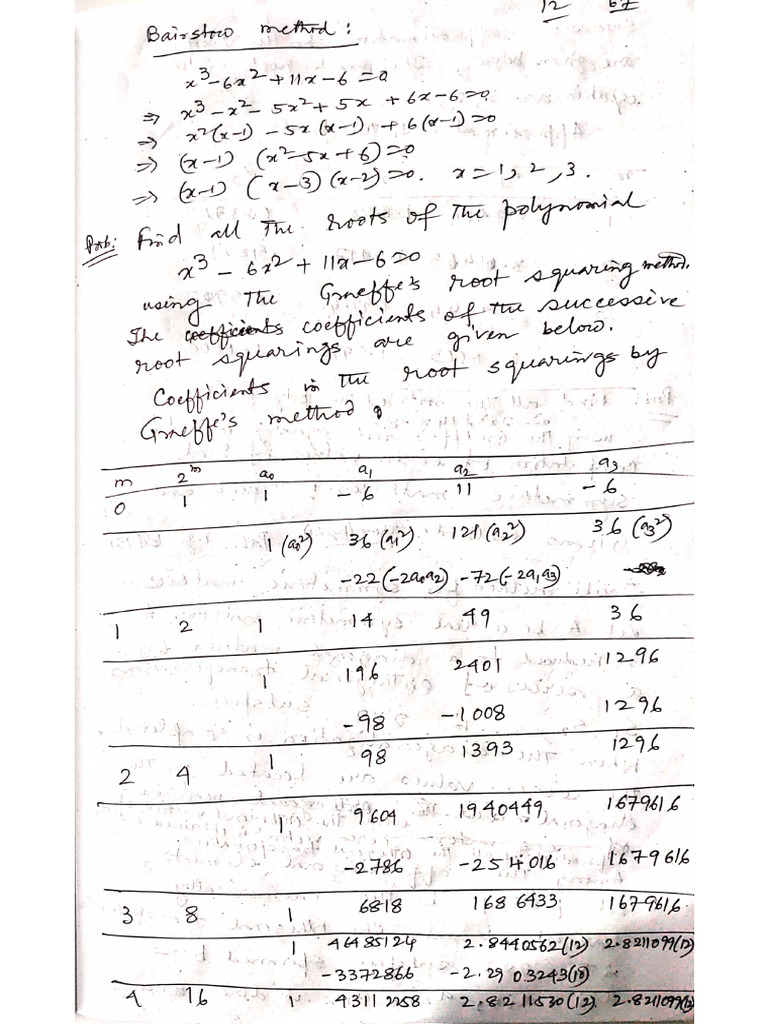 12 67
Bairstow method:
x³-6x²+11x-6=0
⇒ x³-x²-5x²+5x+6x-6=0
⇒ x²(x-1)-5x(x-1)+6(x-1)=0
⇒ (x-1)(x²-5x+6)=0
⇒ (x-1)(x-3)(x-2)=0. x=1,2,3.
Prob: Find all the roots of the polynomial
x³-6x²+11x-6=0
using the Graeffe's root squaring method.
The coefficients of the successive
root squarings are given below.
Coefficients in the root squarings by
Graeffe's method
m 2^m a₀ a₁ a₂ a₃
0 1 1 -6 11 -6
1(a₀²) 36(a₁²) 121(a₂²) 36(a₃²)
-22(-2a₀a₂) -72(-2a₁a₃)
1 2 1 14 49 36
1 196 2401 1296
-98 -1008 1296
2 4 1 98 1393 1296
1 9604 1940449 1679616
-2786 -254016 1679616
3 8 1 6818 1686433 1679616
1 46485124 2.8440562(12) 2.8211099(12)
-3372866 -2.2903243(10)
4 16 1 43112258 2.8211530(12) 2.8211099(12)